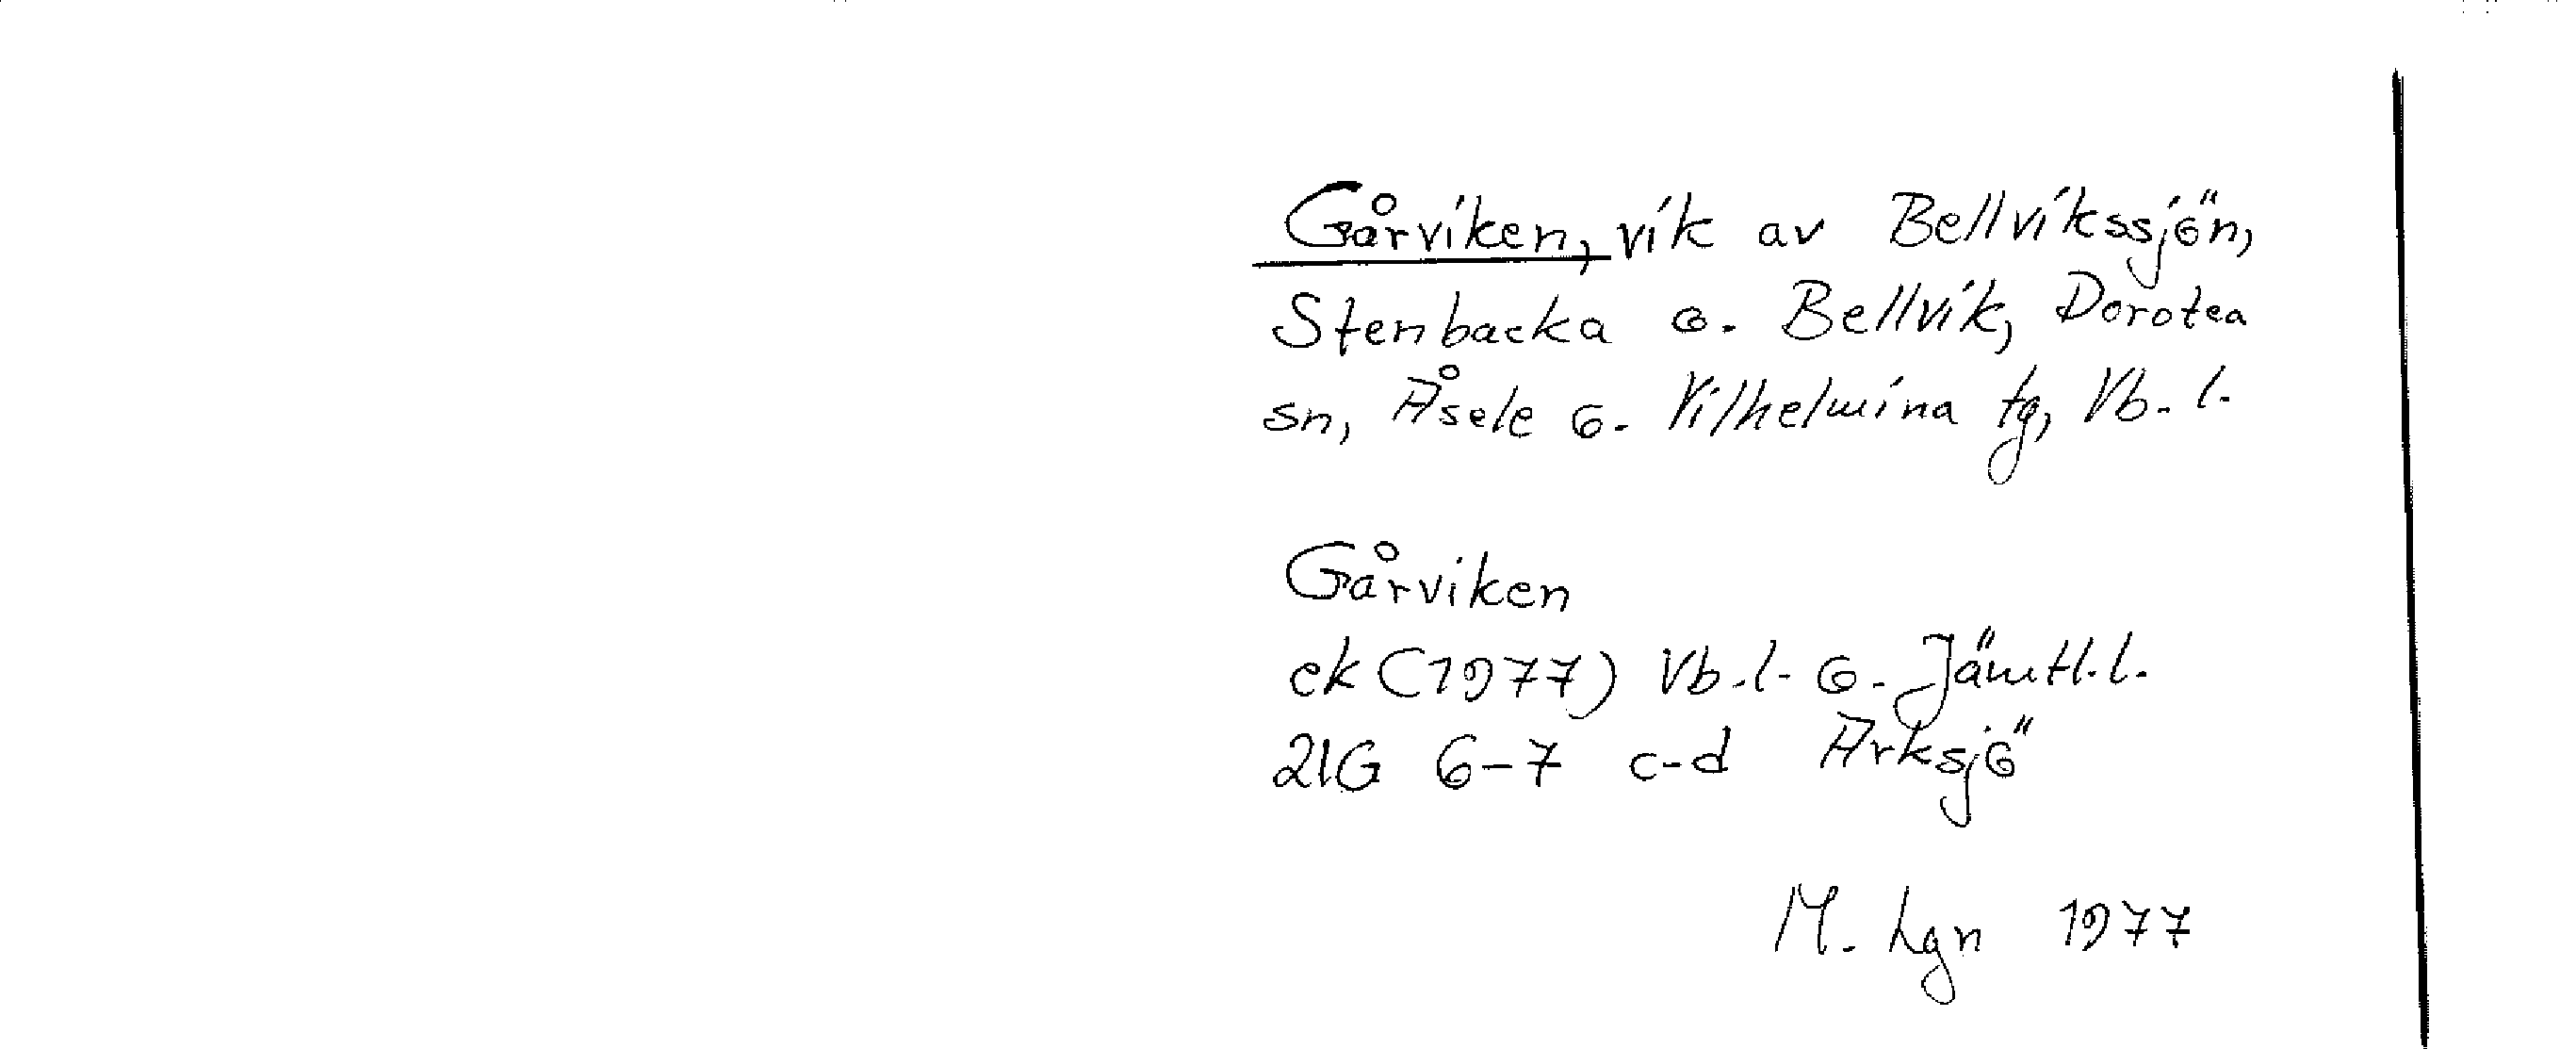 Gårviken, vik av Bellvikssjön,
Stenbacka o. Bellvik, Dorotea
sn, Åsele o. Vilhelmina tg, Vb. l.
Gårviken
ek (1977) Vb. l. o. Jämtl. l.
21G 6-7 c-d Arksjö
M. Lgn 1977